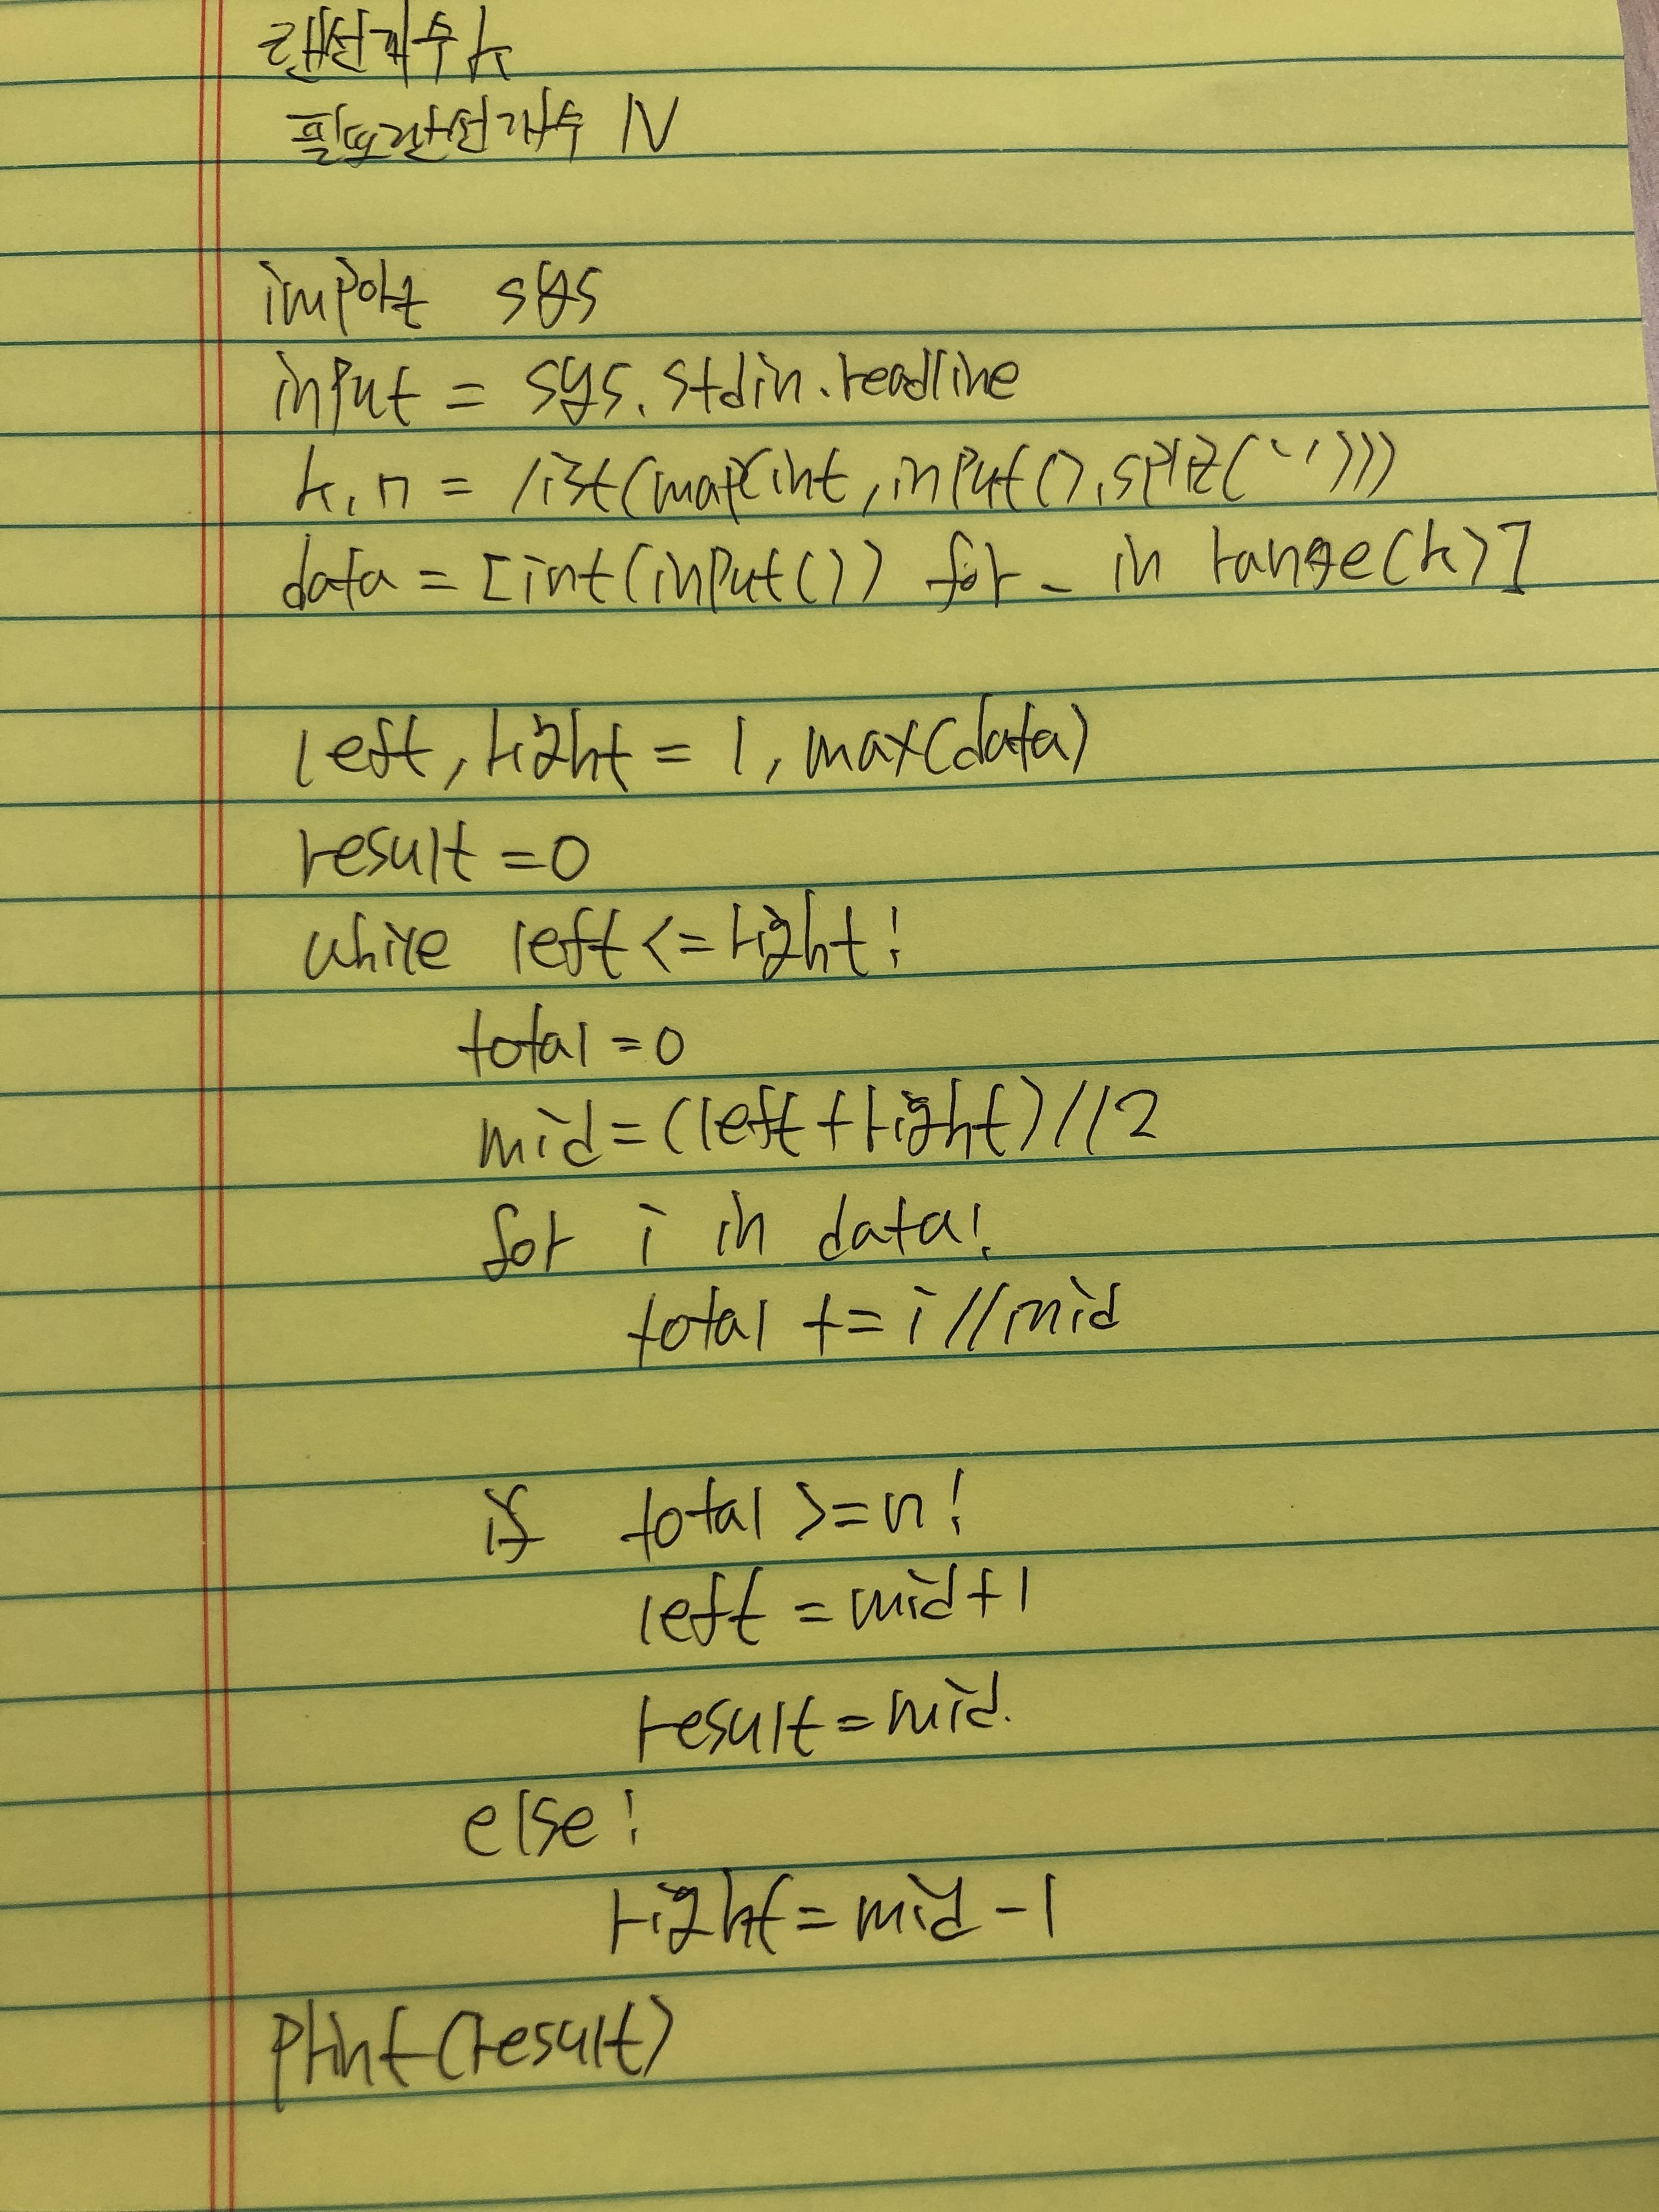 랜선개수 k
필요랜선개수 N
import sys
input = sys.stdin.readline
k, n = list(map(int, input().split(' ')))
data = [int(input()) for _ in range(k)]
left, right = 1, max(data)
result = 0
while left <= right:
total = 0
mid = (left + right) // 2
for i in data:
total += i // mid
if total >= n:
left = mid + 1
result = mid
else:
right = mid - 1
print(result)